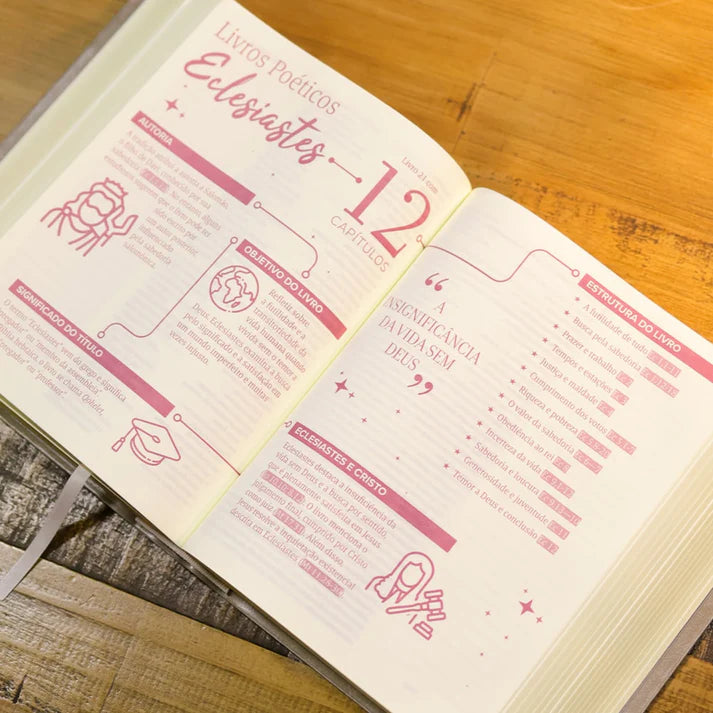 Livros Poéticos
Eclesiastes
Livro 21 com
12
CAPÍTULOS
AUTORIA
A tradição atribui a autoria a Salomão,
o filho de Davi, conhecido por sua
sabedoria
No entanto, alguns
estudiosos sugerem que o livro pode ter
sido escrito por
um autor posterior,
influenciado
pela sabedoria
salomônica.
OBJETIVO DO LIVRO
Refletir sobre
a futilidade e a
transitoriedade da
vida humana, quando
vivida sem o temor a
Deus. Eclesiastes examina a busca
pelo significado e a satisfação em
um mundo imperfeito e muitas
vezes injusto.
SIGNIFICADO DO TÍTULO
O termo "Eclesiastes" vem do grego e significa
"pregador" ou "membro da assembleia".
Na Bíblia hebraica, o livro se chama Qohelet,
"pregador" ou "professor".
“ A
INSIGNIFICÂNCIA
DA VIDA SEM
DEUS ”
ESTRUTURA DO LIVRO
★ A futilidade de tudo (c.1:1-11)
★ Busca pela sabedoria
★ Prazer e trabalho (c.2)
★ Tempos e estações (c.3)
★ Justiça e maldade (c.4)
★ Cumprimento dos votos
★ Riqueza e pobreza
★ O valor da sabedoria
★ Obediência ao rei (c.8)
★ Incerteza da vida
★ Sabedoria e loucura
★ Generosidade e juventude (c.11)
★ Temor a Deus e conclusão (c.12)
ECLESIASTES E CRISTO
Eclesiastes destaca a insuficiência da
vida sem Deus e a busca por sentido,
que é plenamente satisfeita em Jesus
O livro menciona o
julgamento final, cumprido por Cristo
como juiz
Além disso,
Jesus resolve a inquietação existencial
descrita em Eclesiastes (Mt 11:28-30).